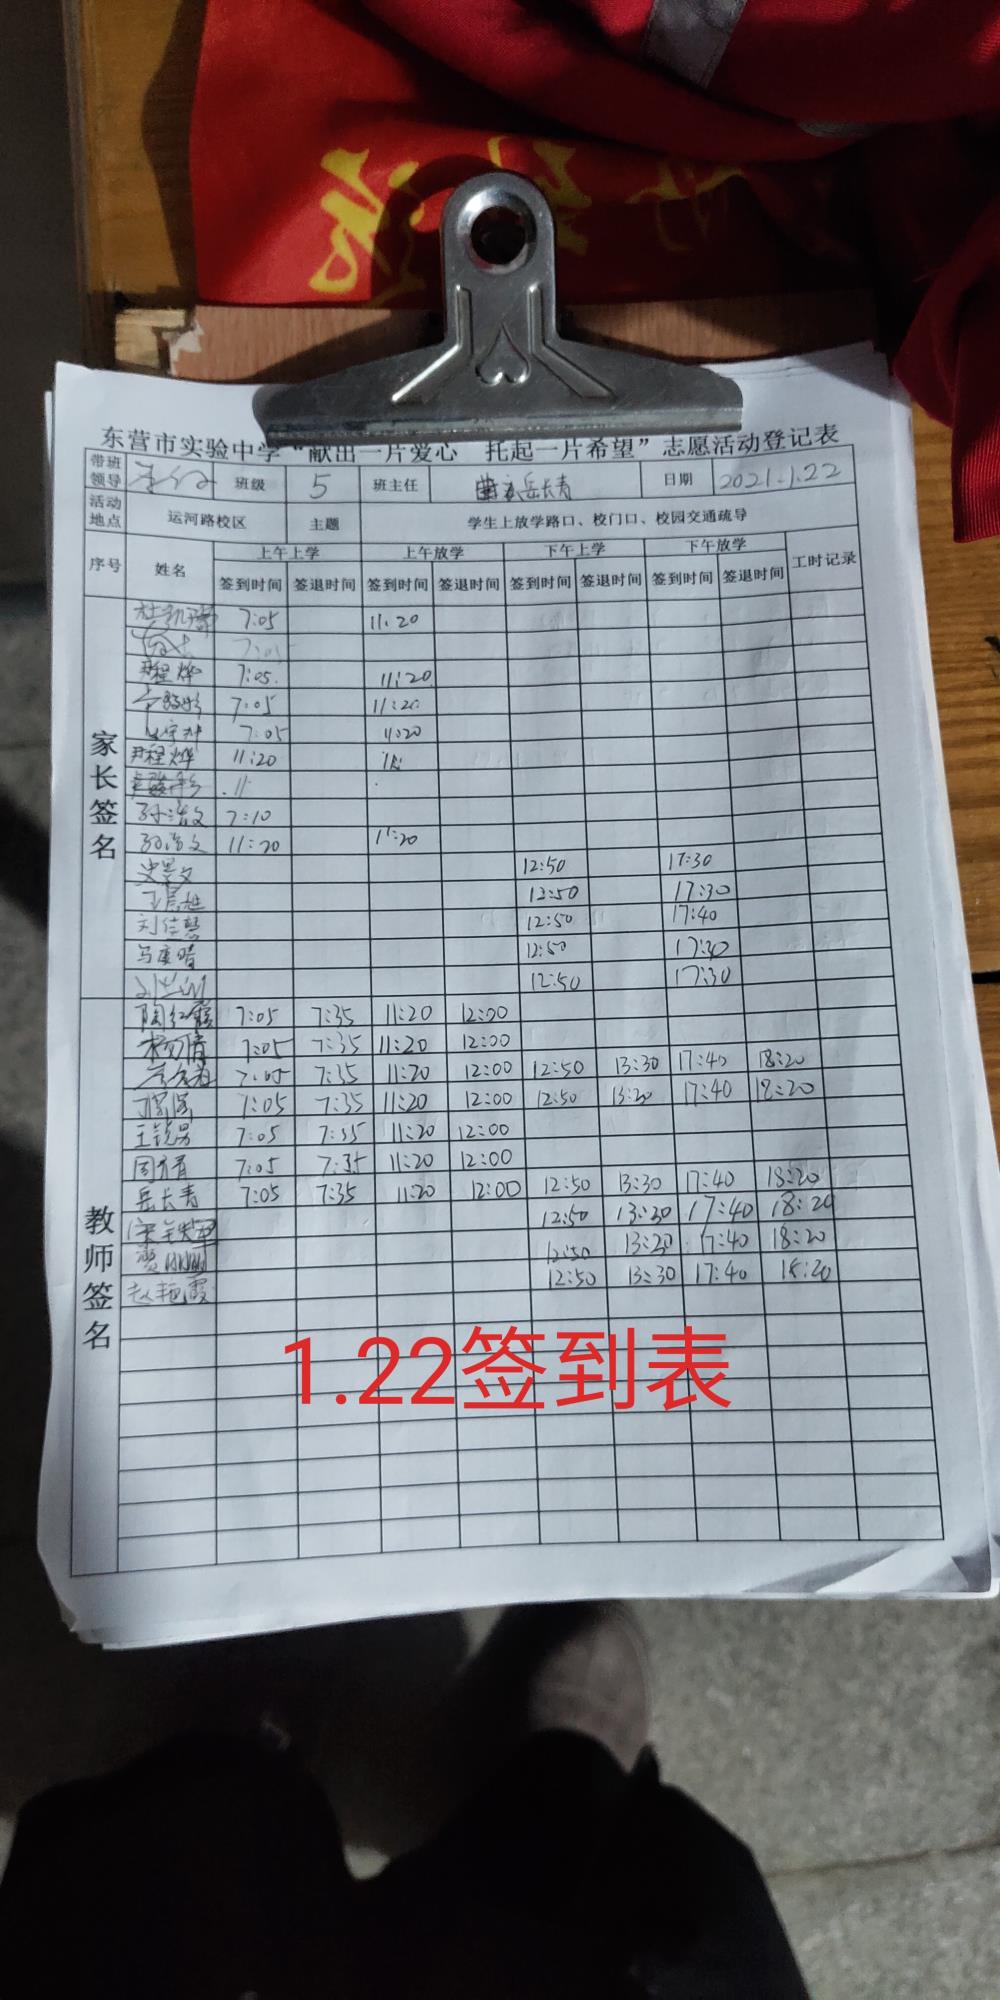 东营市实验中学“献出一片爱心 托起一片希望”志愿活动登记表
带班领导 班级 5 班主任 岳长青 日期 2021.1.22
活动地点 运河路校区 主题 学生上放学路口、校门口、校园交通疏导
序号 姓名 上午上学 上午放学 下午上学 下午放学 工时记录
签到时间 签退时间 签到时间 签退时间 签到时间 签退时间 签到时间 签退时间
家长签名
7:05 11:20
7:05
尹程烨 7:05 11:20
7:05 11:20
7:05 11:20
尹程烨 11:20
孙浩文 7:10
孙浩文 11:20 11:20
史景文 12:50 17:30
12:50 17:30
刘佳慧 12:50 17:40
12:50 17:30
12:50 17:30
教师签名
陶红霞 7:05 7:35 11:20 12:00
杨倩 7:05 7:35 11:20 12:00
7:05 7:35 11:20 12:00 12:50 13:30 17:40 18:20
7:05 7:35 11:20 12:00 12:50 13:20 17:40 18:20
王锐男 7:05 7:35 11:20 12:00
7:05 7:35 11:20 12:00
岳长青 7:05 7:35 11:20 12:00 12:50 13:30 17:40 18:20
宋铁军 12:50 13:30 17:40 18:20
12:50 13:20 17:40 18:20
赵艳霞 12:50 13:30 17:40 18:20
1.22签到表